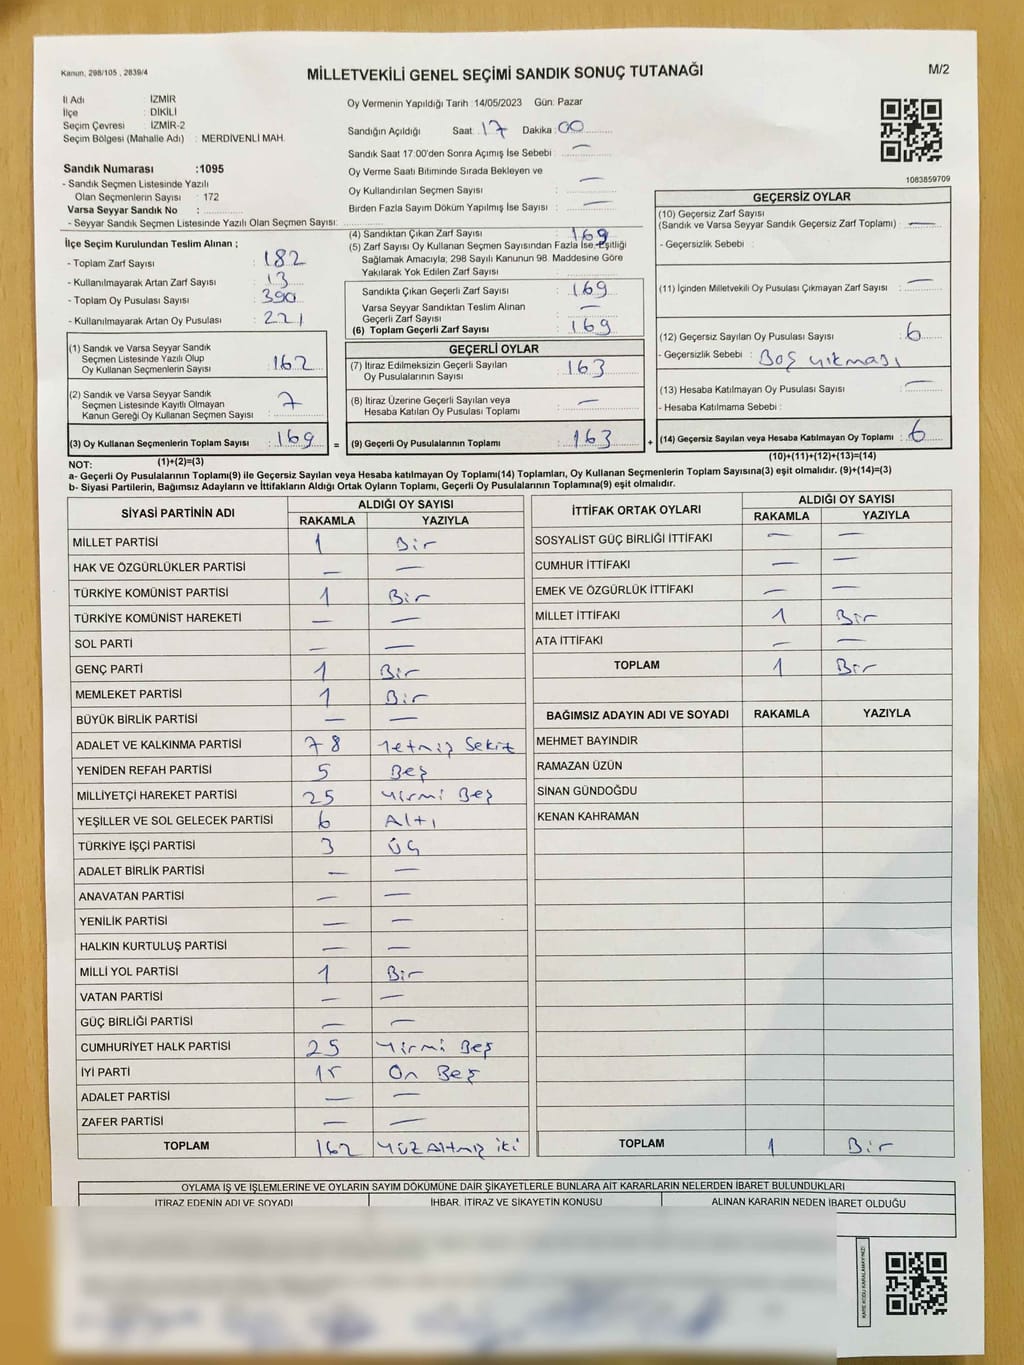 Kanun, 298/105 , 2839/4
MİLLETVEKİLİ GENEL SEÇİMİ SANDIK SONUÇ TUTANAĞI
M/2
İl Adı İZMİR
İlçe : DİKİLİ
Seçim Çevresi : İZMİR-2
Seçim Bölgesi (Mahalle Adı) : MERDİVENLİ MAH.
Sandık Numarası :1095
- Sandık Seçmen Listesinde Yazılı
Olan Seçmenlerin Sayısı : 172
Varsa Seyyar Sandık No :
- Seyyar Sandık Seçmen Listesinde Yazılı Olan Seçmen Sayısı:
Oy Vermenin Yapıldığı Tarih :14/05/2023 Gün: Pazar
Sandığın Açıldığı Saat: 17 Dakika: 00
Sandık Saat 17:00'den Sonra Açımış İse Sebebi : —
Oy Verme Saati Bitiminde Sırada Bekleyen ve
Oy Kullandırılan Seçmen Sayısı : —
Birden Fazla Sayım Döküm Yapılmış İse Sayısı : —
1083859709
İlçe Seçim Kurulundan Teslim Alınan ;
- Toplam Zarf Sayısı : 182
- Kullanılmayarak Artan Zarf Sayısı : 13
- Toplam Oy Pusulası Sayısı : 390
- Kullanılmayarak Artan Oy Pusulası : 221
(1) Sandık ve Varsa Seyyar Sandık
Seçmen Listesinde Yazılı Olup
Oy Kullanan Seçmenlerin Sayısı : 162
(2) Sandık ve Varsa Seyyar Sandık
Seçmen Listesinde Kayıtlı Olmayan
Kanun Gereği Oy Kullanan Seçmen Sayısı : 7
(3) Oy Kullanan Seçmenlerin Toplam Sayısı : 169 =
(1)+(2)=(3)
(4) Sandıktan Çıkan Zarf Sayısı : 169
(5) Zarf Sayısı Oy Kullanan Seçmen Sayısından Fazla İse, Eşitliği
Sağlamak Amacıyla, 298 Sayılı Kanunun 98. Maddesine Göre
Yakılarak Yok Edilen Zarf Sayısı :
Sandıkta Çıkan Geçerli Zarf Sayısı : 169
Varsa Seyyar Sandıktan Teslim Alınan
Geçerli Zarf Sayısı : —
(6) Toplam Geçerli Zarf Sayısı : 169
GEÇERLİ OYLAR
(7) İtiraz Edilmeksizin Geçerli Sayılan
Oy Pusulalarının Sayısı : 163
(8) İtiraz Üzerine Geçerli Sayılan veya
Hesaba Katılan Oy Pusulası Toplamı : —
(9) Geçerli Oy Pusulalarının Toplamı : 163 +
GEÇERSİZ OYLAR
(10) Geçersiz Zarf Sayısı
(Sandık ve Varsa Seyyar Sandık Geçersiz Zarf Toplamı) : —
- Geçersizlik Sebebi :
(11) İçinden Milletvekili Oy Pusulası Çıkmayan Zarf Sayısı : —
(12) Geçersiz Sayılan Oy Pusulası Sayısı : 6
- Geçersizlik Sebebi : Boş çıkması
(13) Hesaba Katılmayan Oy Pusulası Sayısı : —
- Hesaba Katılmama Sebebi :
(14) Geçersiz Sayılan veya Hesaba Katılmayan Oy Toplamı : 6
(10)+(11)+(12)+(13)=(14)
NOT:
a- Geçerli Oy Pusulalarının Toplamı(9) ile Geçersiz Sayılan veya Hesaba katılmayan Oy Toplamı(14) Toplamları, Oy Kullanan Seçmenlerin Toplam Sayısına(3) eşit olmalıdır. (9)+(14)=(3)
b- Siyasi Partilerin, Bağımsız Adayların ve İttifakların Aldığı Ortak Oyların Toplamı, Geçerli Oy Pusulalarının Toplamına(9) eşit olmalıdır.
SİYASİ PARTİNİN ADI ALDIĞI OY SAYISI
RAKAMLA YAZIYLA
MİLLET PARTİSİ 1 Bir
HAK VE ÖZGÜRLÜKLER PARTİSİ — —
TÜRKİYE KOMÜNİST PARTİSİ 1 Bir
TÜRKİYE KOMÜNİST HAREKETİ — —
SOL PARTİ — —
GENÇ PARTİ 1 Bir
MEMLEKET PARTİSİ 1 Bir
BÜYÜK BİRLİK PARTİSİ — —
ADALET VE KALKINMA PARTİSİ 78 Yetmiş Sekiz
YENİDEN REFAH PARTİSİ 5 Beş
MİLLİYETÇİ HAREKET PARTİSİ 25 Yirmi Beş
YEŞİLLER VE SOL GELECEK PARTİSİ 6 Altı
TÜRKİYE İŞÇİ PARTİSİ 3 Üç
ADALET BİRLİK PARTİSİ — —
ANAVATAN PARTİSİ — —
YENİLİK PARTİSİ — —
HALKIN KURTULUŞ PARTİSİ — —
MİLLİ YOL PARTİSİ 1 Bir
VATAN PARTİSİ — —
GÜÇ BİRLİĞİ PARTİSİ — —
CUMHURİYET HALK PARTİSİ 25 Yirmi Beş
İYİ PARTİ 15 On Beş
ADALET PARTİSİ — —
ZAFER PARTİSİ — —
TOPLAM 162 Yüz Altmış iki
İTTİFAK ORTAK OYLARI ALDIĞI OY SAYISI
RAKAMLA YAZIYLA
SOSYALİST GÜÇ BİRLİĞİ İTTİFAKI — —
CUMHUR İTTİFAKI — —
EMEK VE ÖZGÜRLÜK İTTİFAKI — —
MİLLET İTTİFAKI 1 Bir
ATA İTTİFAKI — —
TOPLAM 1 Bir
BAĞIMSIZ ADAYIN ADI VE SOYADI RAKAMLA YAZIYLA
MEHMET BAYINDIR
RAMAZAN ÜZÜN
SİNAN GÜNDOĞDU
KENAN KAHRAMAN
TOPLAM 1 Bir
OYLAMA İŞ VE İŞLEMLERİNE VE OYLARIN SAYIM DÖKÜMÜNE DAİR ŞİKAYETLERLE BUNLARA AİT KARARLARIN NELERDEN İBARET BULUNDUKLARI
İTİRAZ EDENİN ADI VE SOYADI İHBAR, İTİRAZ VE ŞİKAYETİN KONUSU ALINAN KARARIN NEDEN İBARET OLDUĞU
KARE KODU KARALAMAYINIZ!